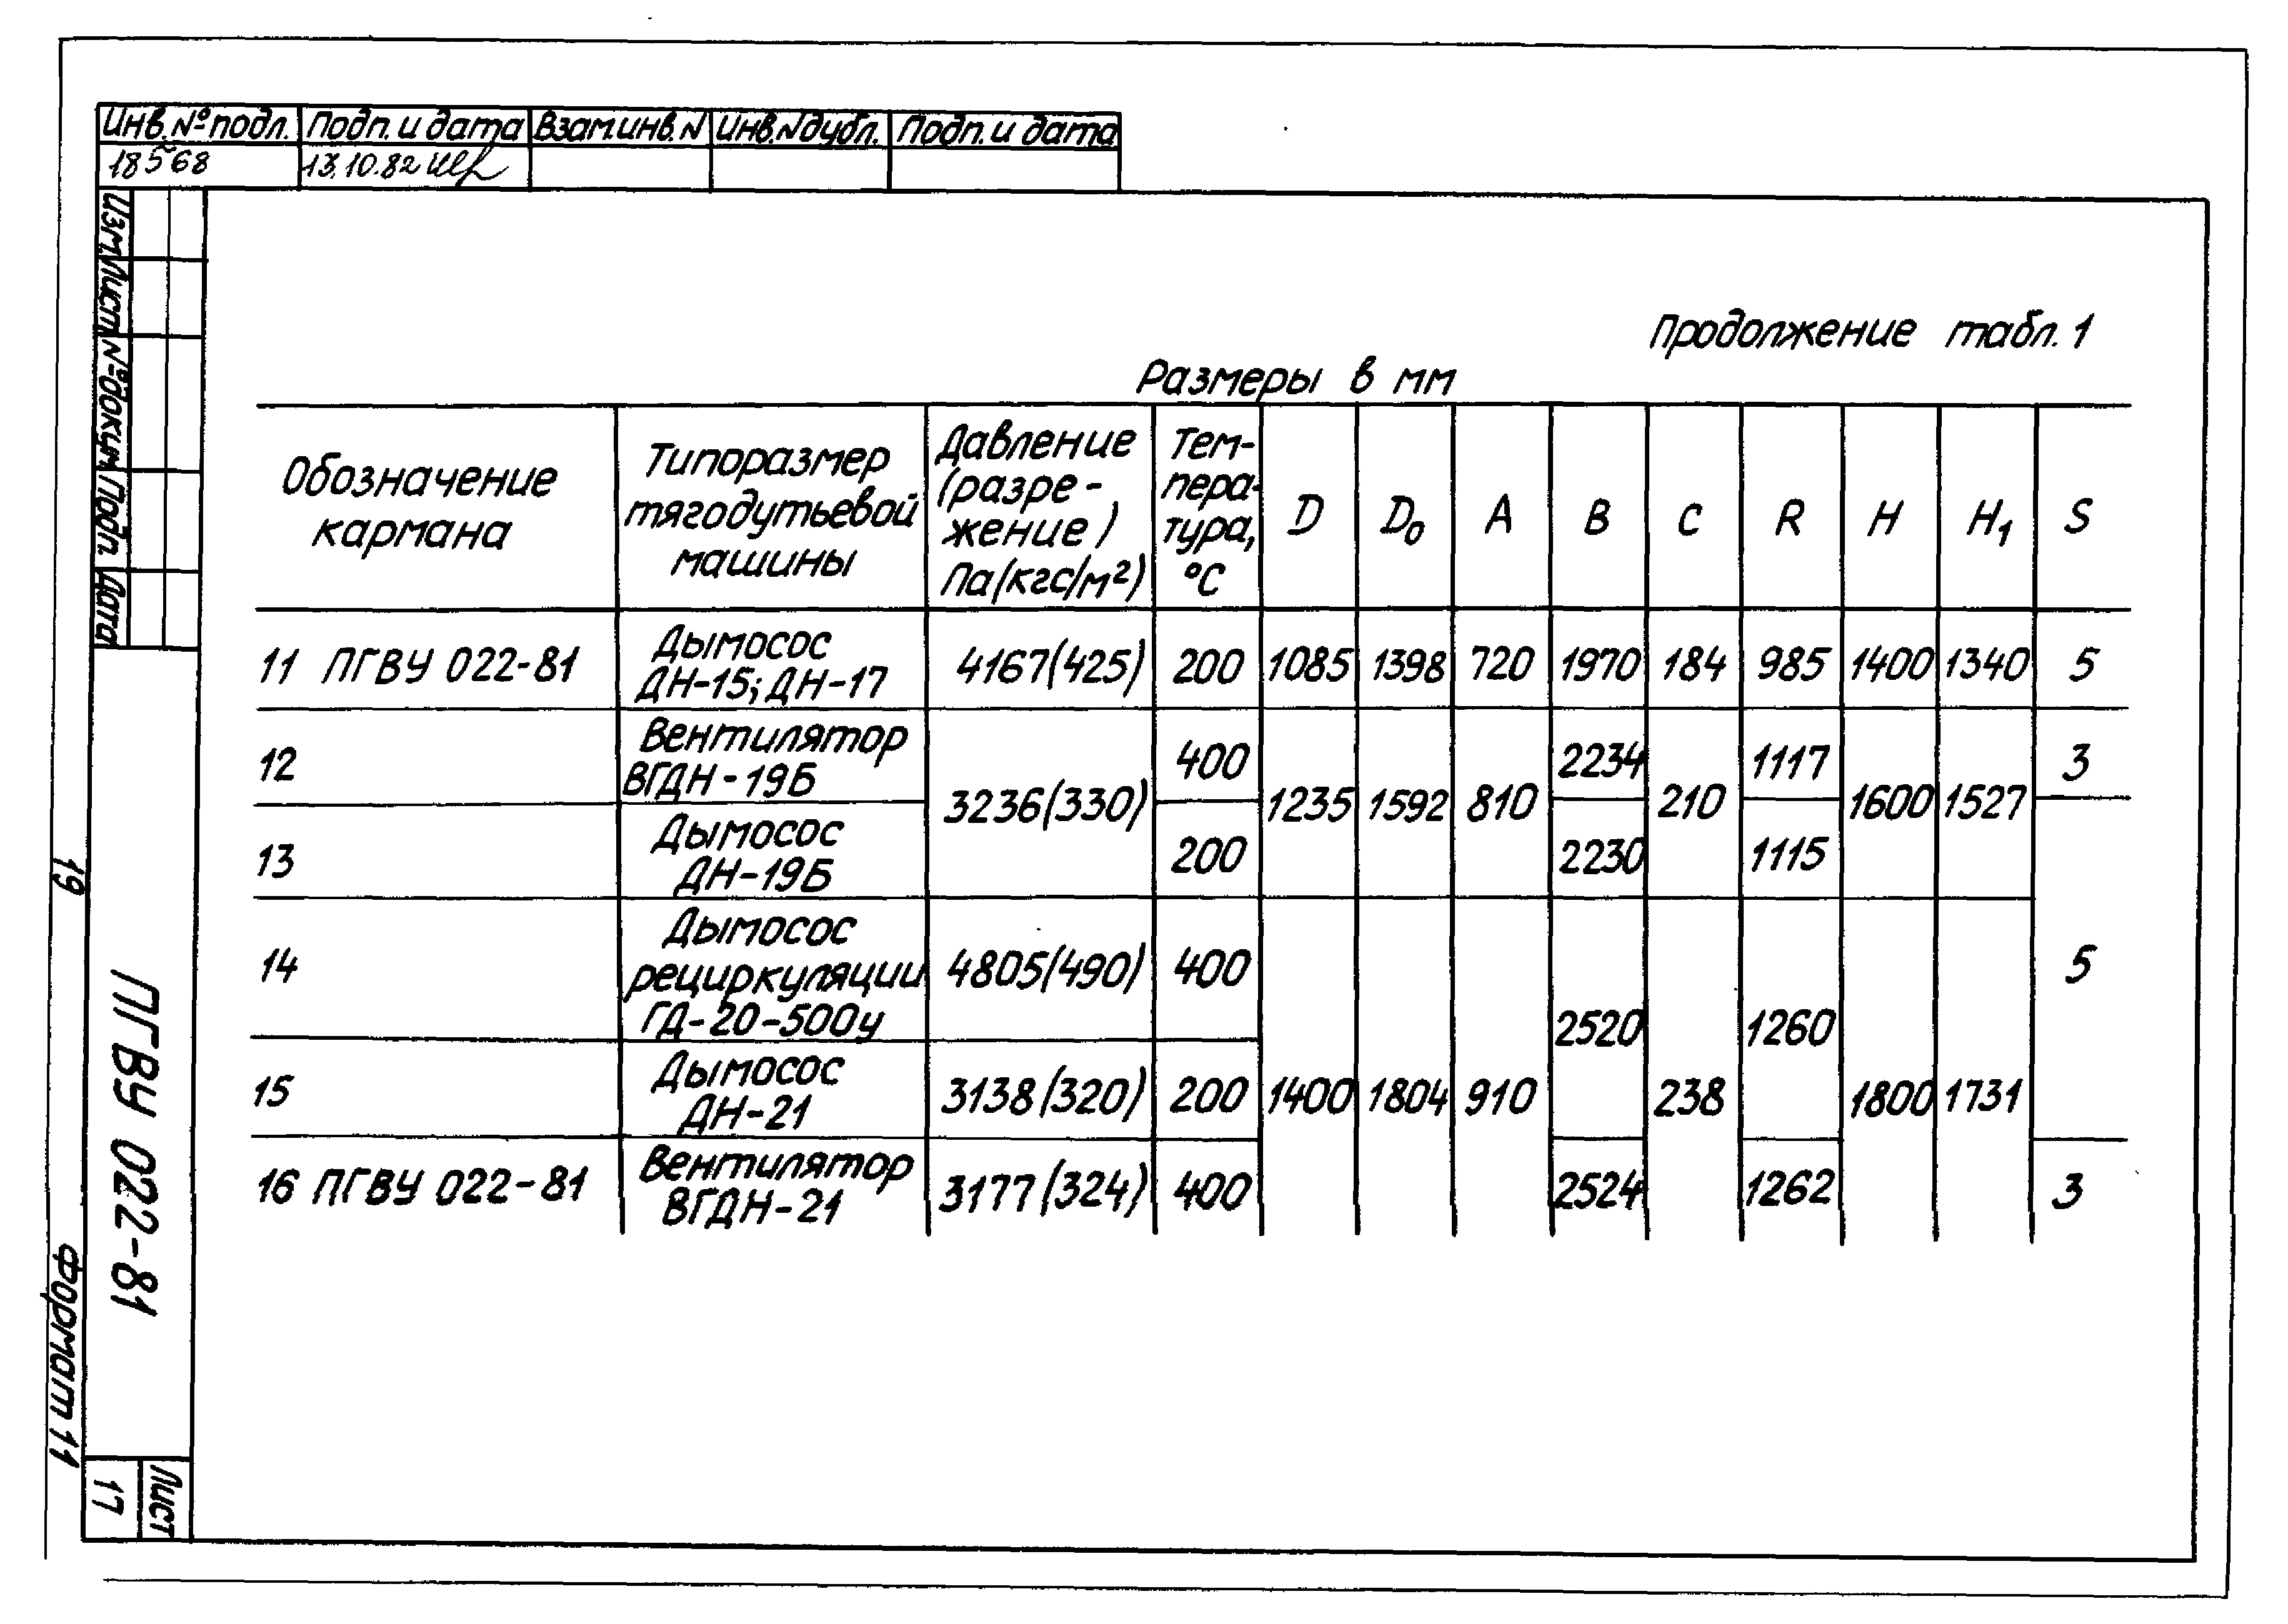 Инв.№ подл. Подп. и дата Взам.инв.N Инв.N дубл. Подп. и дата
18568 13.10.82
Изм. Лист № докум. Подп. Дата
Продолжение табл. 1
Размеры в мм
Обозначение кармана
Типоразмер тягодутьевой машины
Давление (разре-
жение)
Па(кгс/м²)
Тем-
пера-
тура,
°С
D D₀ A B C R H H₁ S
11 ПГВУ 022-81 Дымосос ДН-15; ДН-17 4167(425) 200 1085 1398 720 1970 184 985 1400 1340 5
12 Вентилятор ВГДН-19Б 3236(330) 400 1235 1592 810 2234 210 1117 1600 1527 3
13 Дымосос ДН-19Б 200 2230 1115
14 Дымосос рециркуляции ГД-20-500у 4805(490) 400 2520 1260 5
15 Дымосос ДН-21 3138(320) 200 1400 1804 910 238 1800 1731
16 ПГВУ 022-81 Вентилятор ВГДН-21 3177(324) 400 2524 1262 3
19
ПГВУ 022-81
Формат 11
Лист
17